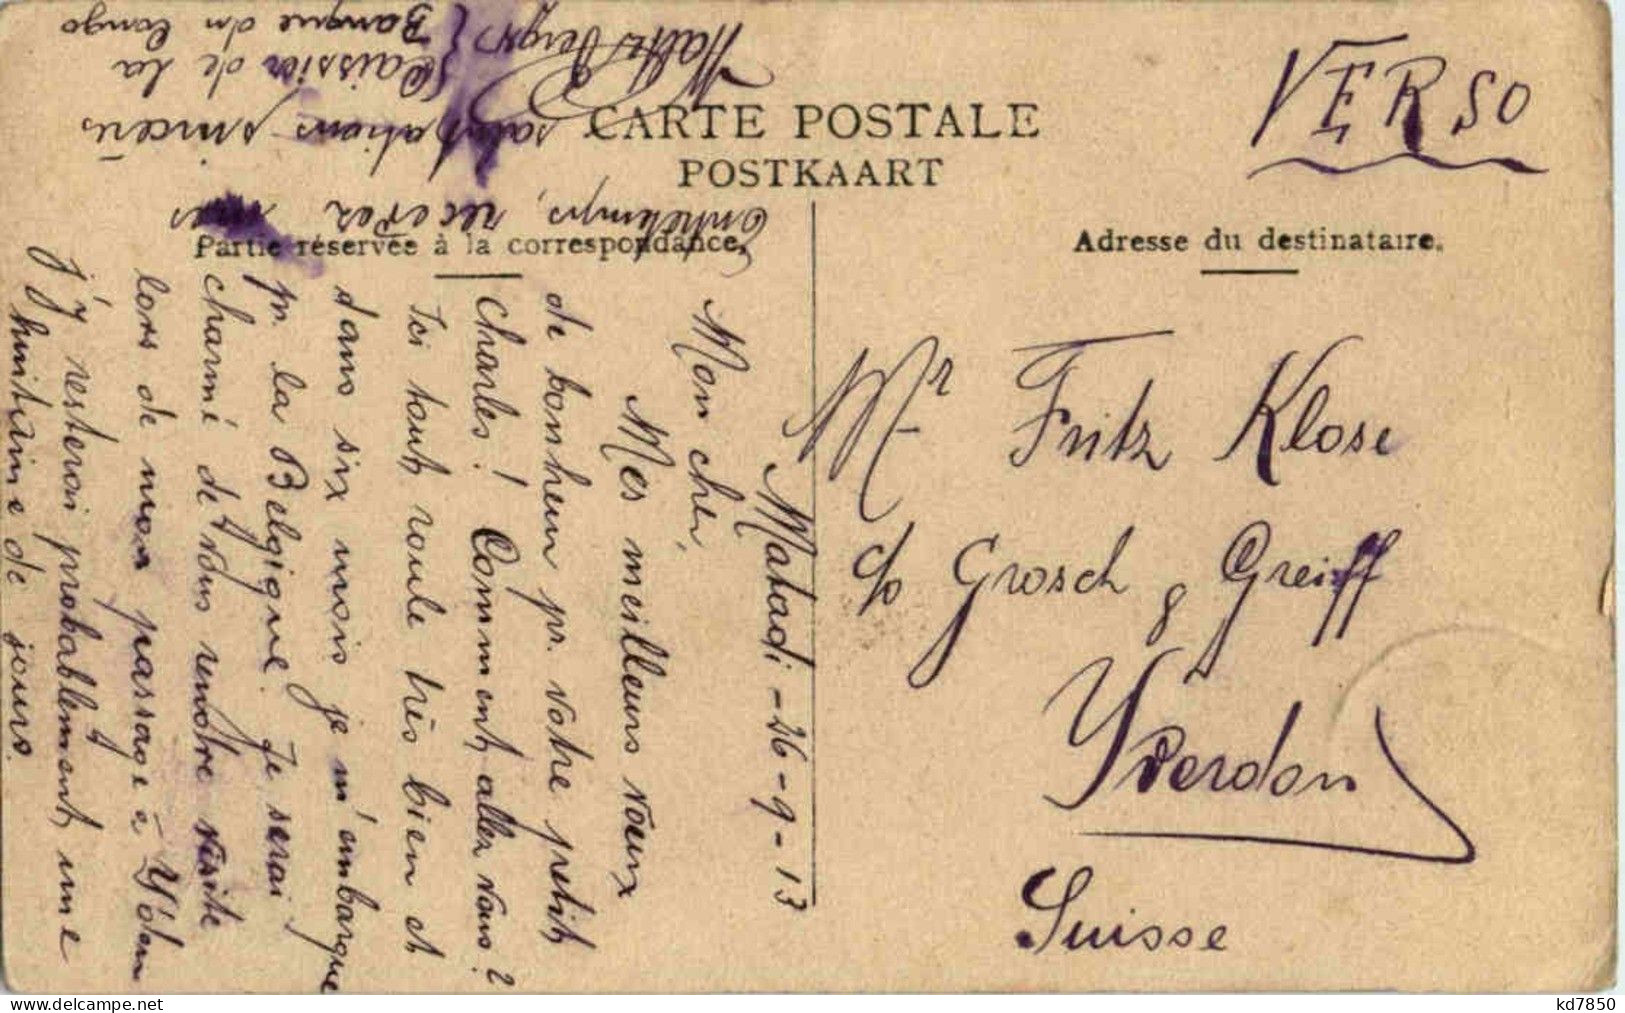 CARTE POSTALE
POSTKAART
VERSO
Partie réservée à la correspondance.
Adresse du destinataire.
Mr Fritz Klose
c/o Grosch & Greiff
Yverdon
Suisse
Matadi - 26 - 9 - 13
Mon cher,
Mes meilleurs voeux
de bonheur pr. votre petit
Charles! Comment allez vous?
Ici tout roule très bien et
dans six mois je m'embarque
pr. la Belgique. Je serai
charmé de vous rendre visite
lors de mon passage à Y'don
j'y resterai probablement une
huitaine de jours.
Entretemps, recevez mes
salutations sincères
Caissier de la
Banque du Congo
kd7850